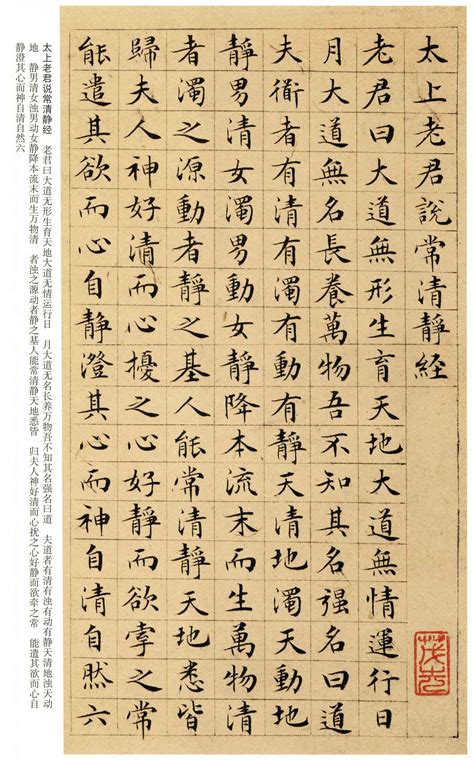 太上老君說常清靜経
老君曰大道無形生育天地大道無情運行日
月大道無名長養萬物吾不知其名强名曰道
夫衜者有清有濁有動有靜天清地濁天動地
靜男清女濁男動女靜降本流末而生萬物清
者濁之源動者靜之基人能常清靜天地悉皆
歸夫人神好清而心擾之心好靜而欲牽之常
能遣其欲而心自靜澄其心而神自清自然六
太上老君说常清静经 老君曰大道无形生育天地大道无情运行日 月大道无名长养万物吾不知其名强名曰道 夫道者有清有浊有动有静天清地浊天动
地 静男清女浊男动女静降本流末而生万物清 者浊之源动者静之基人能常清静天地悉皆 归夫人神好清而心扰之心好静而欲牵之常 能遣其欲而心自
静澄其心而神自清自然六